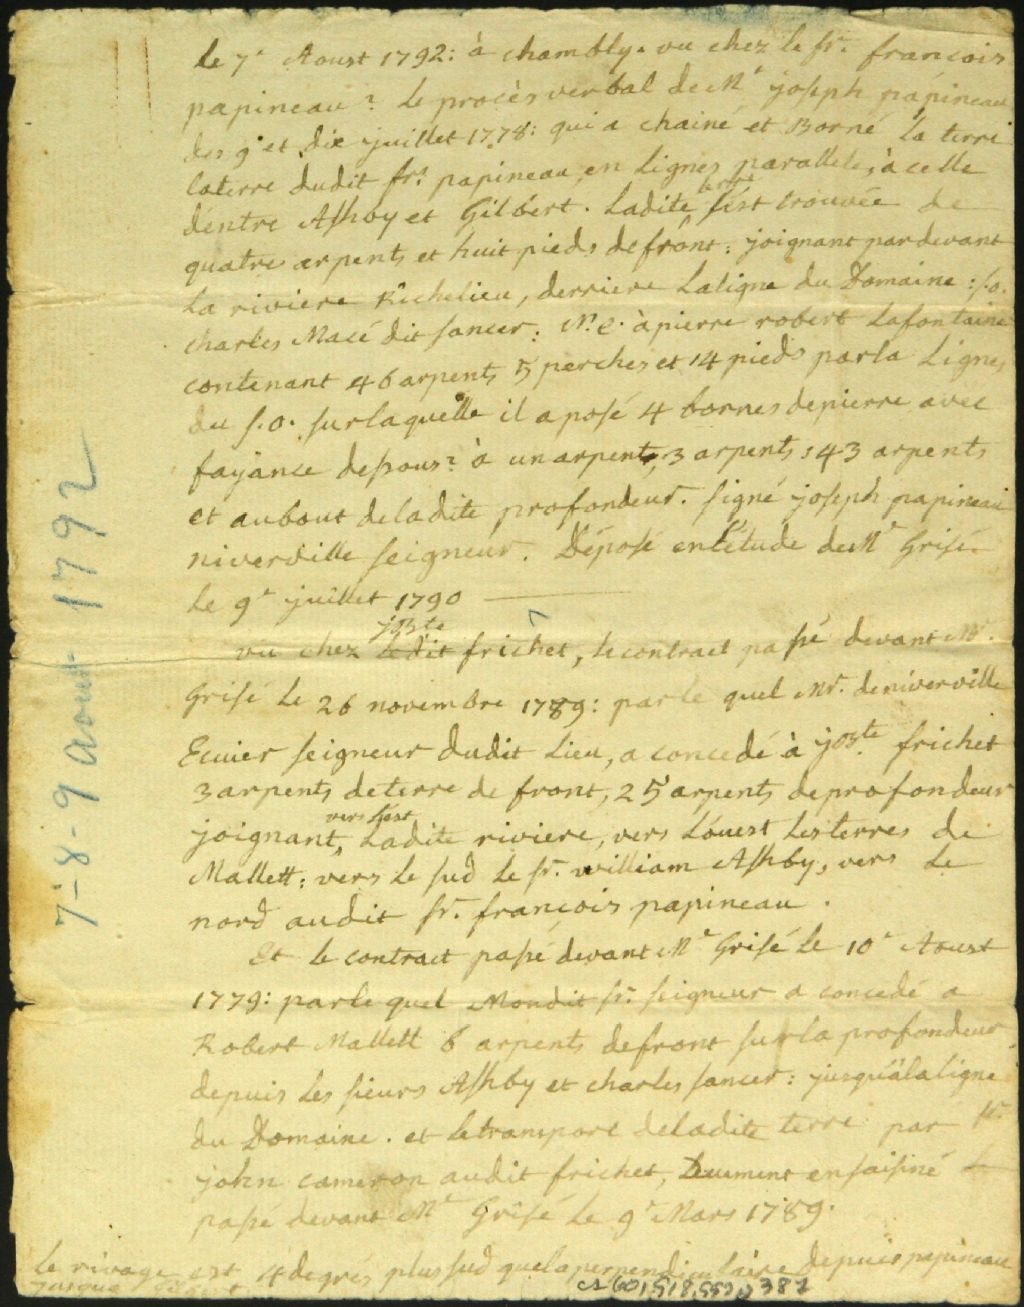 le 7e Aoust 1792: à chambly. vu chez le Sr. françois
papineau? Le procès verbal de Me joseph papineau
des 9e et dix juillet 1778: qui a chainé et Borné la terre
la terre dudit Sr. papineau, en Lignes parallele, à celle
dentre Ashby et Gilbert. Ladite terre s'est trouvée de
quatre arpents et huit pieds de front: joignant par devant
La riviere Richelieu, derriere La ligne du Domaine: s.o.
charles Macé dit sancer: N.e. à pierre robert Lafontaine
contenant 46 arpents 5 perches et 14 pieds par la Ligne
du s.o. sur laquelle il a posé 4 bornes de pierre avec
fayance dessous? à un arpent, 3 arpents, 43 arpents
et au bout de ladite profondeur. signé joseph papineau
niverville seigneur. Déposé en L'étude de Me Grisé
Le 9e juillet 1790
vu chez joste ledit frichet, le contract passé devant Me.
Grisé Le 26 novembre 1789: par le quel Mr. de niverville
Ecuier seigneur dudit Lieu, a concedé à joste frichet
3 arpents de terre de front, 25 arpents de profondeur
joignant, vers L'est Ladite riviere, vers L'ouest Les terres de
Mallett: vers Le sud Le Sr. william Ashby, vers Le
nord audit Sr. françois papineau.
Et le contract passé devant Me Grisé Le 10e Aoust
1779: par le quel Mondit Sr. seigneur a concedé a
Robert Mallett 6 arpents de front sur la profondeur
depuis Les sieurs Ashby et charles sancer: jusqu'à la ligne
du Domaine. et Le transport de ladite terre par Sr.
john cameron audit frichet, Duement ensaisiné
passé devant Me Grisé Le 9e Mars 1789.
Le rivage est 4 degrés plus sud que la perpendiculaire depuis papineau
jusqua
7-8-9 Aout 1792